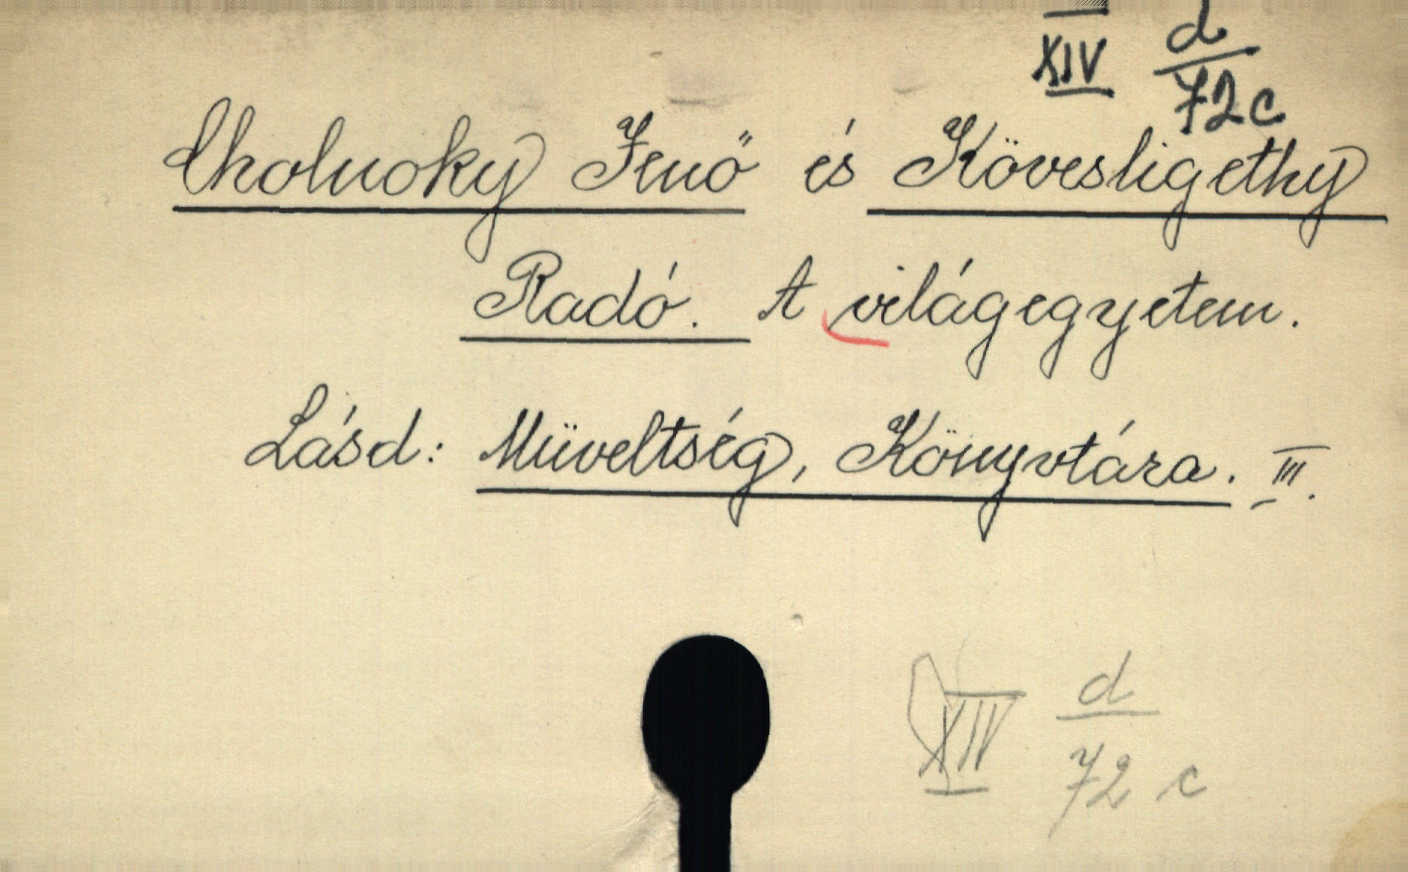 XIV d/72c
Cholnoky Jenő és Kövesligethy
Radó. A világegyetem.
Lásd: Müveltség, Könyvtára. III.
XIV d/72 c